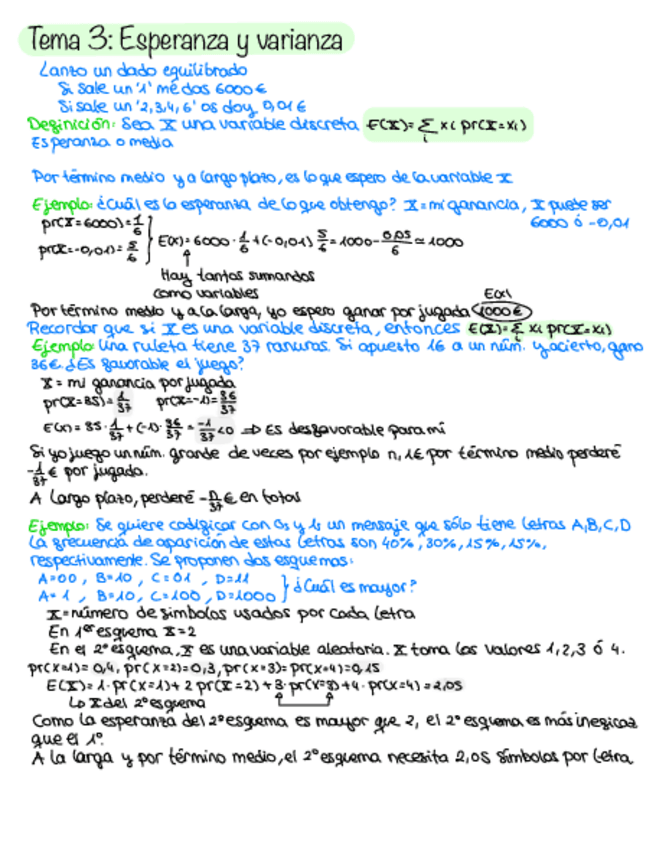 Tema 3: Esperanza y varianza
Lanzo un dado equilibrado
Si sale un '1' me das 6000€
Si sale un '2,3,4,6' os doy 0,01€
Definición: Sea X una variable discreta E(X)= Σ xi pr(X=xi)
i
Esperanza o media
Por término medio y a largo plazo, es lo que espero de la variable X
Ejemplo: ¿Cuál es la esperanza de lo que obtengo? X=mi ganancia, X puede ser
6000 ó -0,01
pr(X=6000)=1/6
pr(X=-0,01)=5/6
E(X)=6000·1/6+(-0,01)5/6=1000-0,05/6≃1000
Hay tantos sumandos
como variables
E(X)
Por término medio y a la larga, yo espero ganar por jugada 1000€
Recordar que si X es una variable discreta, entonces E(X)=Σ xi pr(X=xi)
i
Ejemplo: Una ruleta tiene 37 ranuras. Si apuesto 1€ a un núm. y acierto, gano
36€ ¿Es favorable el juego?
X = mi ganancia por jugada
pr(X=35)=1/37 pr(X=-1)=36/37
E(X)=35·1/37+(-1)·36/37=-1/37<0 ⇒ Es desfavorable para mí
Si yo juego un núm. grande de veces por ejemplo n, 1€ por término medio perderé
-1/37€ por jugada.
A largo plazo, perderé -n/37€ en total
Ejemplo: Se quiere codificar con 0s y 1s un mensaje que sólo tiene letras A,B,C,D
La frecuencia de aparición de estas letras son 40%, 30%, 15%, 15%,
respectivamente. Se proponen dos esquemas:
A=00, B=10, C=01, D=11
A=1, B=10, C=100, D=1000
¿Cuál es mayor?
X=número de símbolos usados por cada letra
En 1er esquema X=2
En el 2º esquema, X es una variable aleatoria. X toma los valores 1,2,3 ó 4.
pr(X=1)=0,4, pr(X=2)=0,3, pr(X=3)=pr(X=4)=0,15
E(X)=1·pr(X=1)+2pr(X=2)+3·pr(X=3)+4·pr(X=4)=2,05
↳X del 2º esquema
Como la esperanza del 2º esquema es mayor que 2, el 2º esquema es más ineficaz
que el 1º.
A la larga y por término medio, el 2º esquema necesita 2,05 símbolos por letra